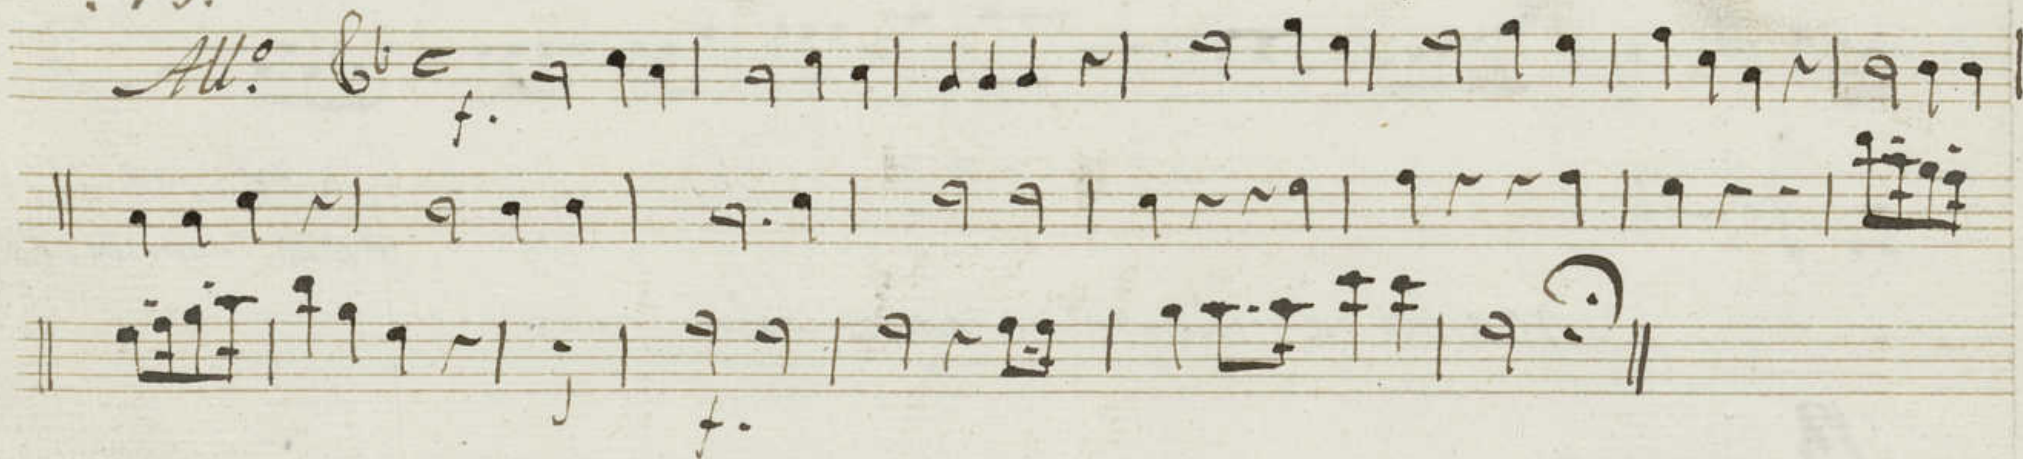 All.o
f.
f.